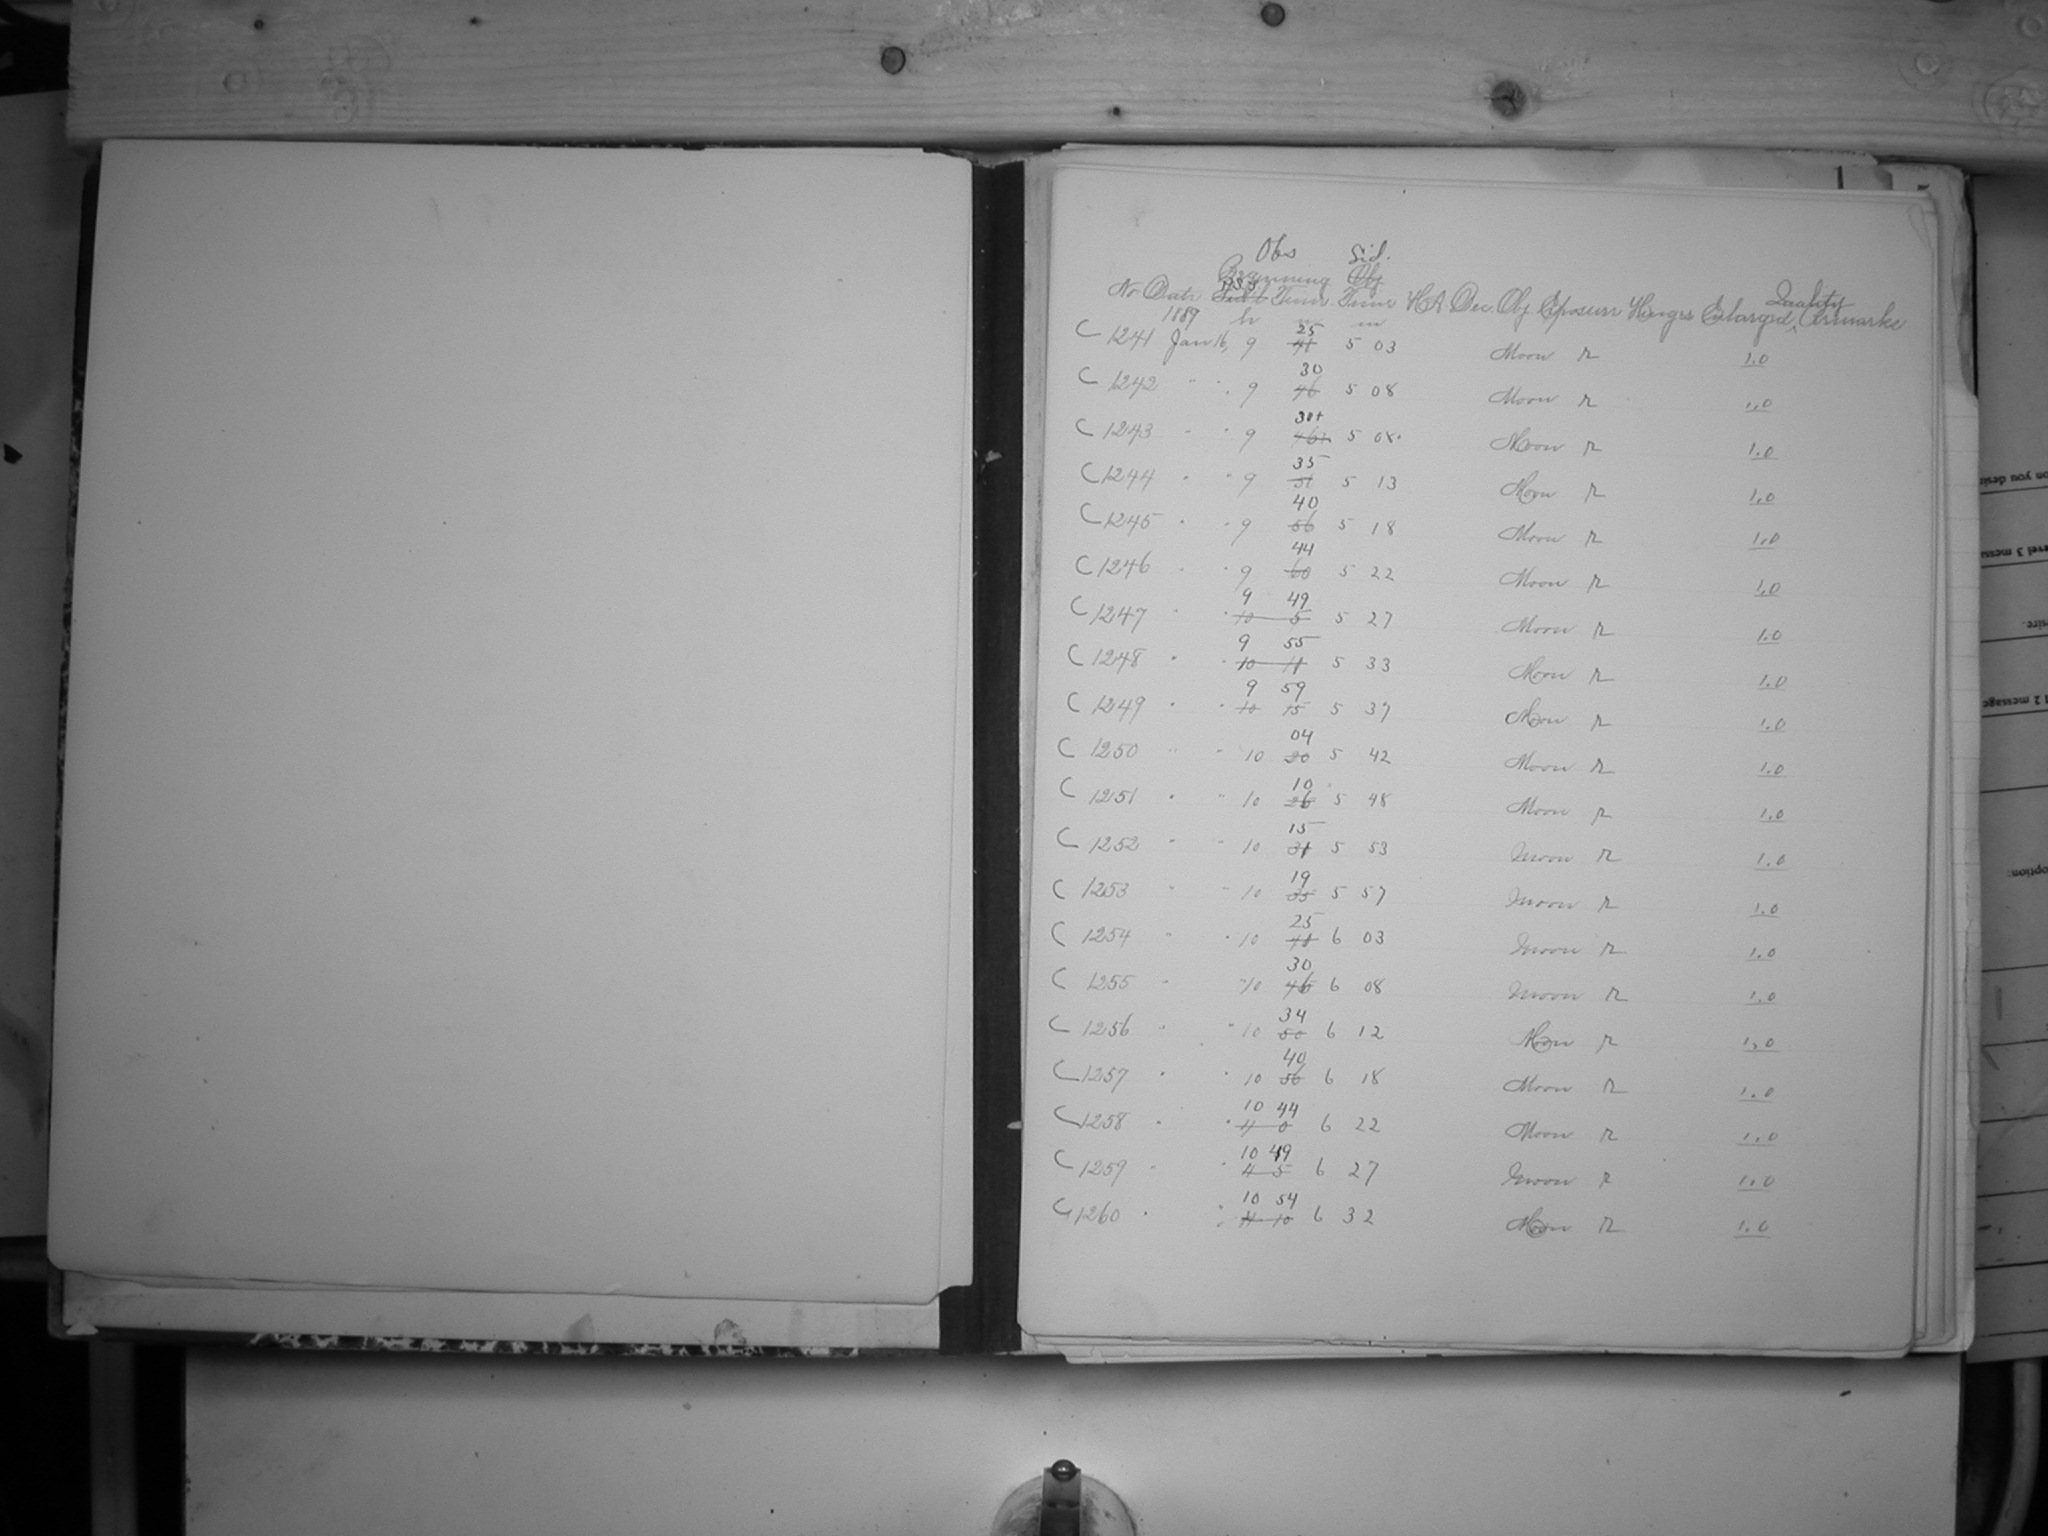 Obs Sid.
Beginning Obj
No Date Time Time H.A. Dec. Obj. Exposure Hinges Enlarged, Quality Remarks
1889 h m m
C 1241 Jan 16, 9 25 41 5 03 Moon R 1.0
C 1242 " " 9 30 46 5 08 Moon R 1.0
C 1243 " " 9 30+ 46+ 5 08. Moon R 1.0
C 1244 " " 9 35 51 5 13 Moon R 1.0
C 1245 " " 9 40 56 5 18 Moon R 1.0
C 1246 " " 9 44 60 5 22 Moon R 1.0
9 49
C 1247 " " 10 5 5 27 Moon R 1.0
9 55
C 1248 " " 10 11 5 33 Moon R 1.0
9 59
C 1249 " " 10 15 5 37 Moon R 1.0
C 1250 " " 10 04 20 5 42 Moon R 1.0
C 1251 " " 10 10 26 5 48 Moon R 1.0
C 1252 " " 10 15 31 5 53 Moon R 1.0
C 1253 " " 10 19 35 5 57 Moon R 1.0
C 1254 " " 10 25 41 6 03 Moon R 1.0
C 1255 " " 10 30 46 6 08 Moon R 1.0
C 1256 " " 10 34 50 6 12 Moon R 1.0
C 1257 " " 10 40 56 6 18 Moon R 1.0
10 44
C 1258 " " 11 0 6 22 Moon R 1.0
10 49
C 1259 " " 11 5 6 27 Moon R 1.0
10 54
C 1260 " " 11 10 6 32 Moon R 1.0
on you desir
vel 3 messa
sire.
l 2 message
option: